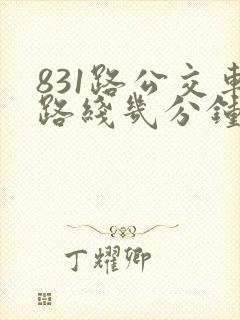 831路公交车
路綫幾分鐘
丁耀卿